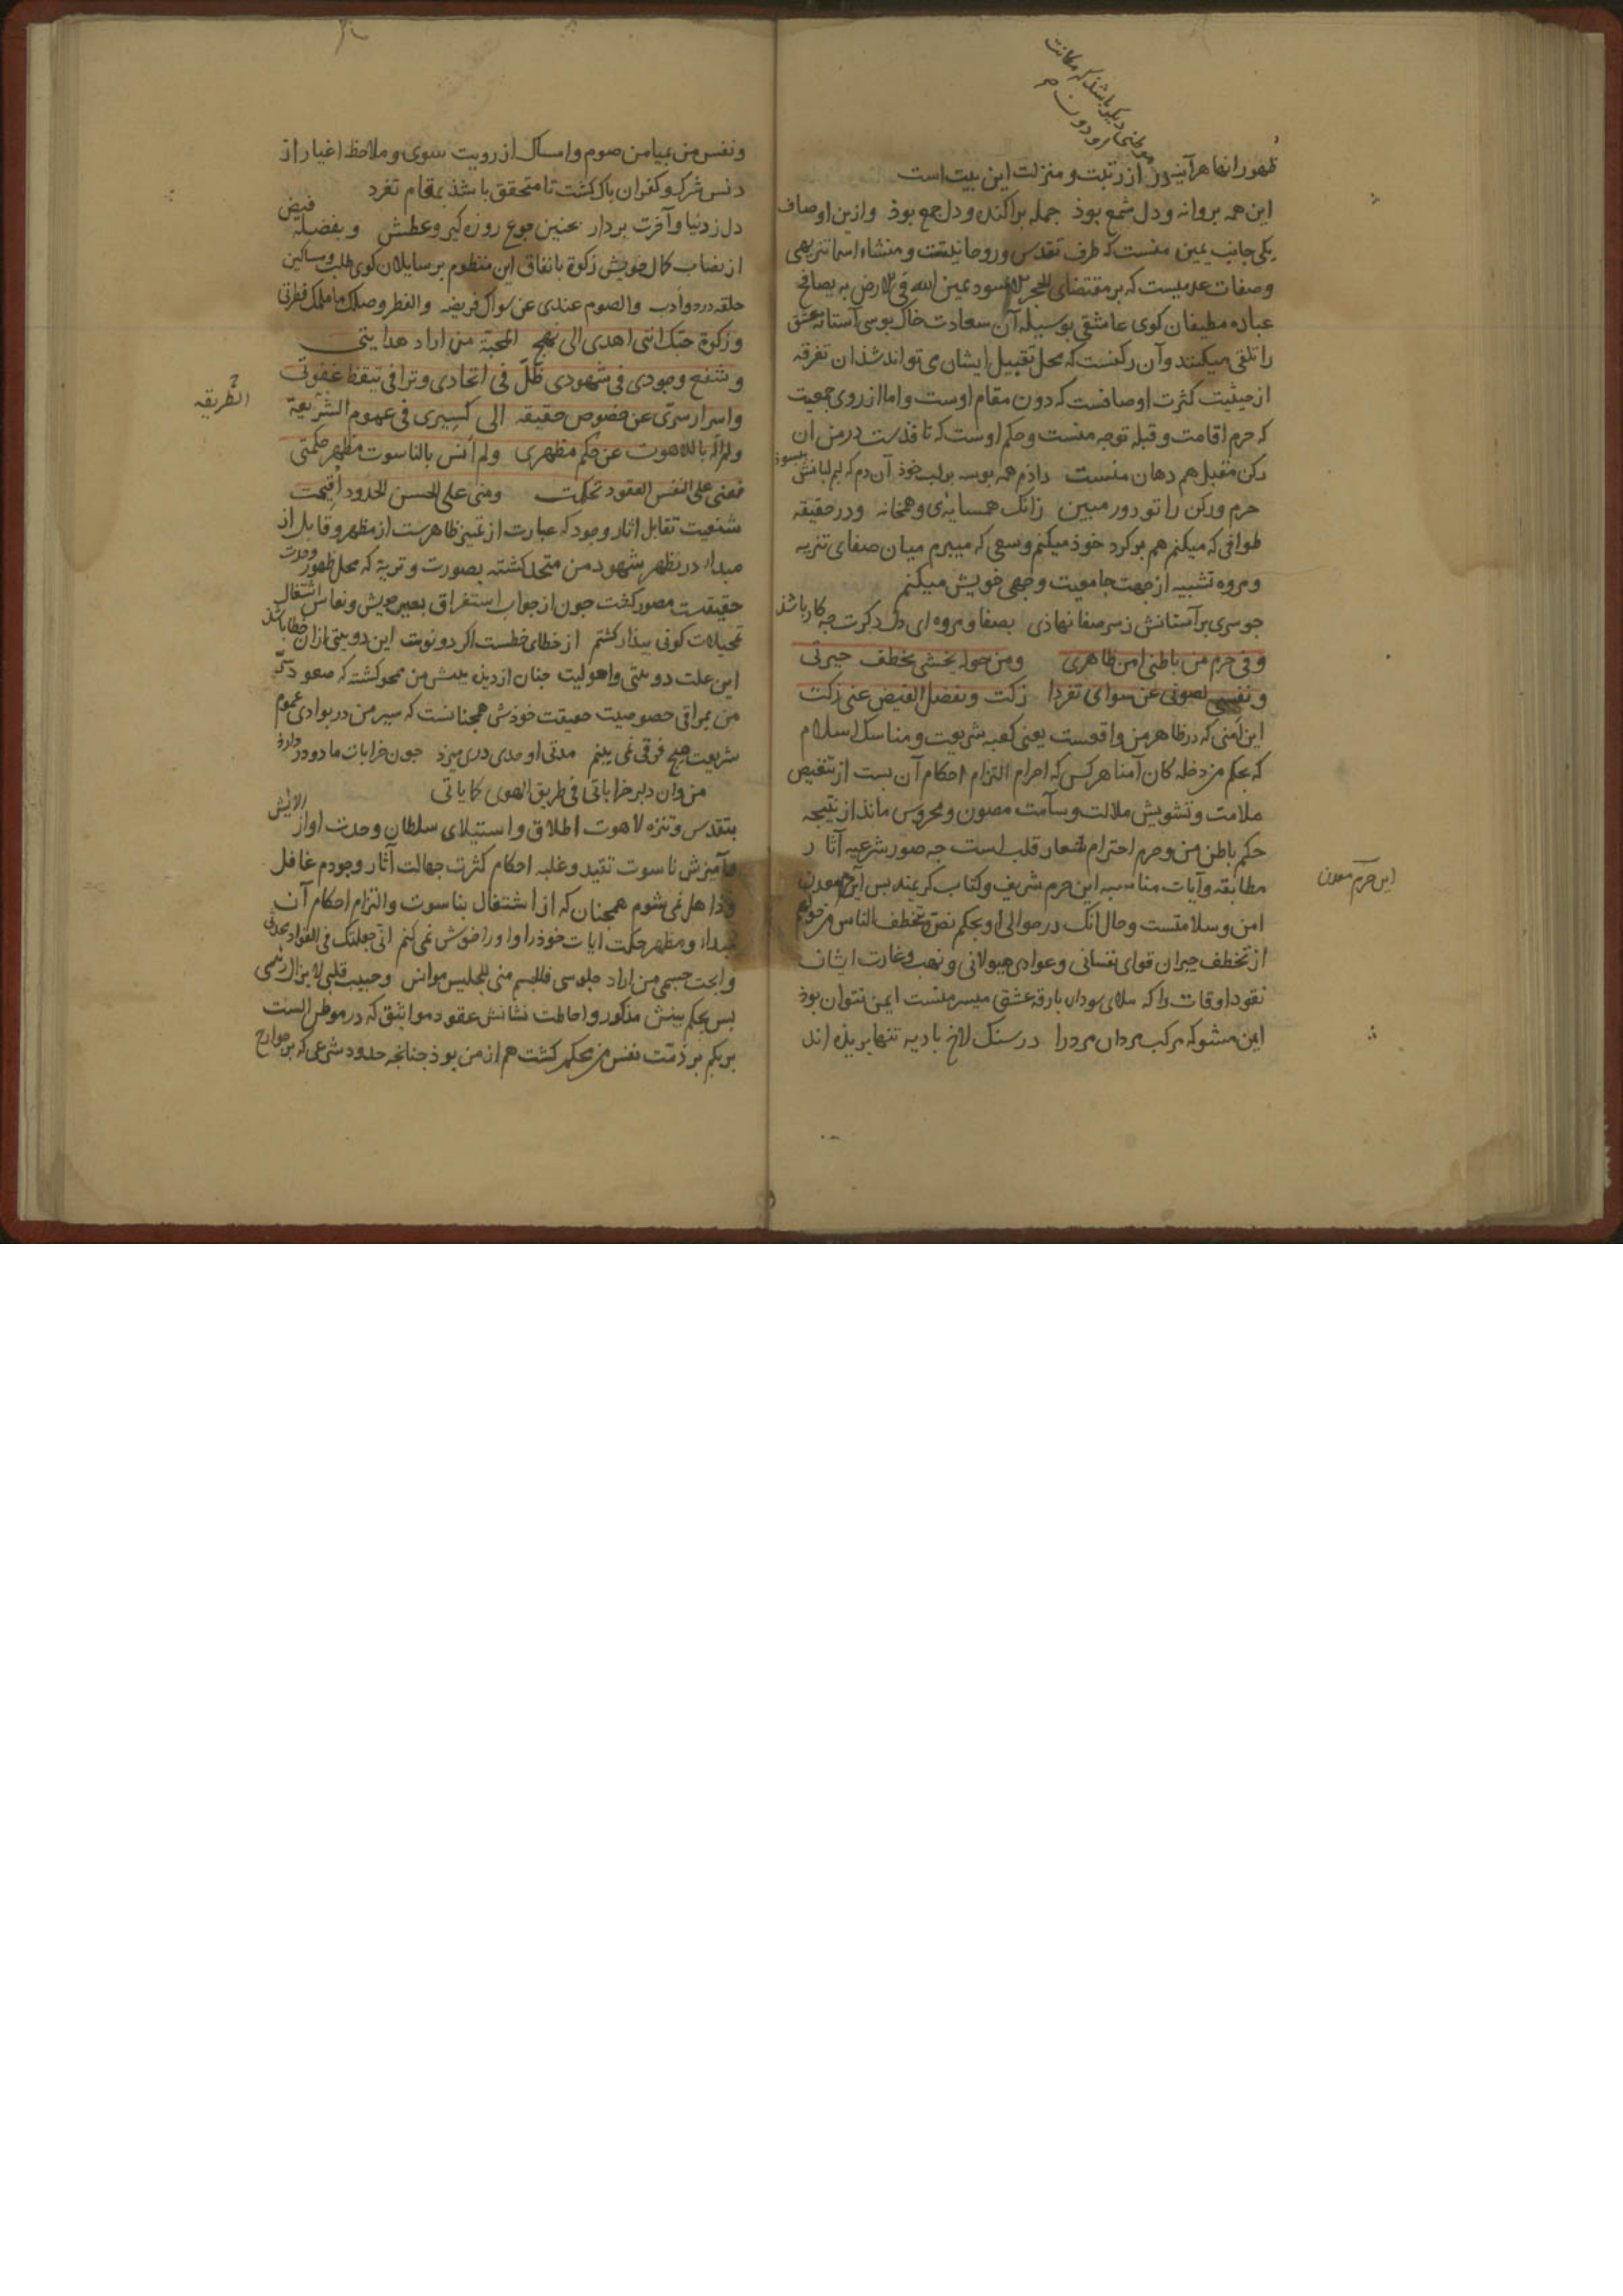 معنی دیگر باشد که مکانت
ظهور انها هر آینه دون از رتبت و منزلت این بیت است
این همه بروانه و دل شمع بوذ جمله براکنده و دل جمع بوذ وازین اوصاف
یکی جانب یمین منست که طرف تقدس و روحانیتست و منشاء اسما تنزیهی
وصفات علمیست که بر مقتضای الحجر الاسود یمین الله فی الارض به یصافح
عباده مطیفان کوی عاشقی بوسیله آن سعادت خاک بوسی آستانه عشق
را تلقی میکنند وآن رکنست که محل تقبیل ایشان ی تواند شذ ان تفرقه
از حیثیت کثرت اوصافست که دون مقام اوست واما از روی جمعیت
که حرم اقامت و قبله توجه منست وحکم اوست که تا قدست در من ان
رکن مقبل هم دهان منست داذم همه بوسه بر لب خوذ آن دم که لبم لبانش ببسوذ
حرم ورکن را تو دور مبین زانک همسایه‌ی و همخانه ودر حقیقه
طوافی که میکنم هم بر کرد خوذ میکنم وسعی که میبرم میان صفای تنزیه
ومروه تشبیه از جهت جامعیت وجهی خویش میکنم
جو سری بر آستانش ز سر صفا نهاذی بصفا و مروه ای دل دکرت جه کار باشذ
وفی حرم من باطنی امن ظاهری ومن حوله یخشی تخطف جیرتی
ونفسی بصومی عن سوای تفردا زکت وبفضل الفیض عنی زکت
این امنی که در ظاهر من واقعست یعنی کعبه شریعت ومناسک اسلام
که بحکم من دخله کان آمنا هر کس که احرام التزام احکام آن بست از تنغیص
ملامت وتشویش ملالت وسآمت مصون و محروس ماند از نتیجه
حکم باطن من وحرم احترام شعار قلب است جه صور شرعیه آثار
مطابقه وآیات مناسبه این حرم شریف وکتاب کریمند بس این حرم معدن
امن وسلامتست وحال انک در حوالی او بحکم نص و یتخطف الناس من حولهم
از تخطف جیران قوای نفسانی وعوادی هیولانی و نهب وغارت ایشان
نقود اوقات را که بارقه عشق میسر منست ایمن نتوان بوذ
ایمن مشو که مرکب مردان مرد را در سنک لاخ بادیه تنها بریذه اند
این حرم معدن
ونفس من بمیامن صوم وامساک از رویت سوی وملاحظه اغیار از
دنس شرک وکفران باک کشت تا متحقق باشذ بمقام تفرد
دل ز دنیا وآخرت بردار بجنین جوع روزه کیر وعطش وبفضله فیض
از نصاب کمال خویش زکوة باتفاق این منظوم بر سایلان کوی طلب ومساکین
حلقه درد وادب والصوم عندی عن سواک فریضه والفطر وصلک ما ملک فطرتی
وزکوة حبک اننی اهدی الی نهج المحبة من اراد هدایتی
وشفع وجودی فی شهودی ظل فی اتحادی وترا فی تیقظ غفوتی
واسرار سری عن خصوص حقیقه الی کسیری فی عموم الشریعة
الطریقه
ولم اله باللاهوت عن حکم مظهری ولم انس بالناسوت مظهر حکمتی
فعنی علی النفس العقود تحکمت ومنی علی الحسن الحدود اقیمت
شفعیت تقابل اثار وجود که عبارت از تمییز ظاهرست از مظهر وقابل از
مبداء در نظر شهود من متحد کشته بصورت وتریة که محل ظهور وحدت
حقیقت مصور کشت جون از خواب استغراق بعیر خویش ونعاس اشتغال
تخیلات کونی بیدار کشتم از خطای خطست اکر دو نوشت این دو بیتی ازان خطا باشذ
این علت دو بینی واحولیت جنان از دیده من محو کشته که صعود سر
من بمراقی خصوصیت حقیقت خوذش همجنانست که سیر من در بوادی عموم
شریعت هیچ فرقی نمی بینم مدتی اوحدی دری میزد جون خرابات ما دو در دارذ
من وان دلبر خراباتی فی طریق الهوی کما یاتی
بتقدس وتنزه لاهوت اطلاق واستیلای سلطان وحدت او از الایش
وآمیزش ناسوت تقید وغلبه احکام کثرت جهالت آثار وجودم غافل
وذاهل نمی شوم همجنان که از اشتغال بناسوت والتزام احکام آن
مبداء ومظهر حکمت ایات خوذ را او را فراموش نمی کنم انی جعلتک فی الفواد محدثی
وابحت جسمی من اراد جلوسی فالجسم منی للجلیس موانس وحبیب قلبی لا یزال انیسی
بس بحکم بینش مذکور واحاطت نشانش عقود مواثیق که در موطن الست
بربکم بر ذمت نفس من محکم کشت هم از من بوذ جنانجه حدود شرعی که بر جوارح